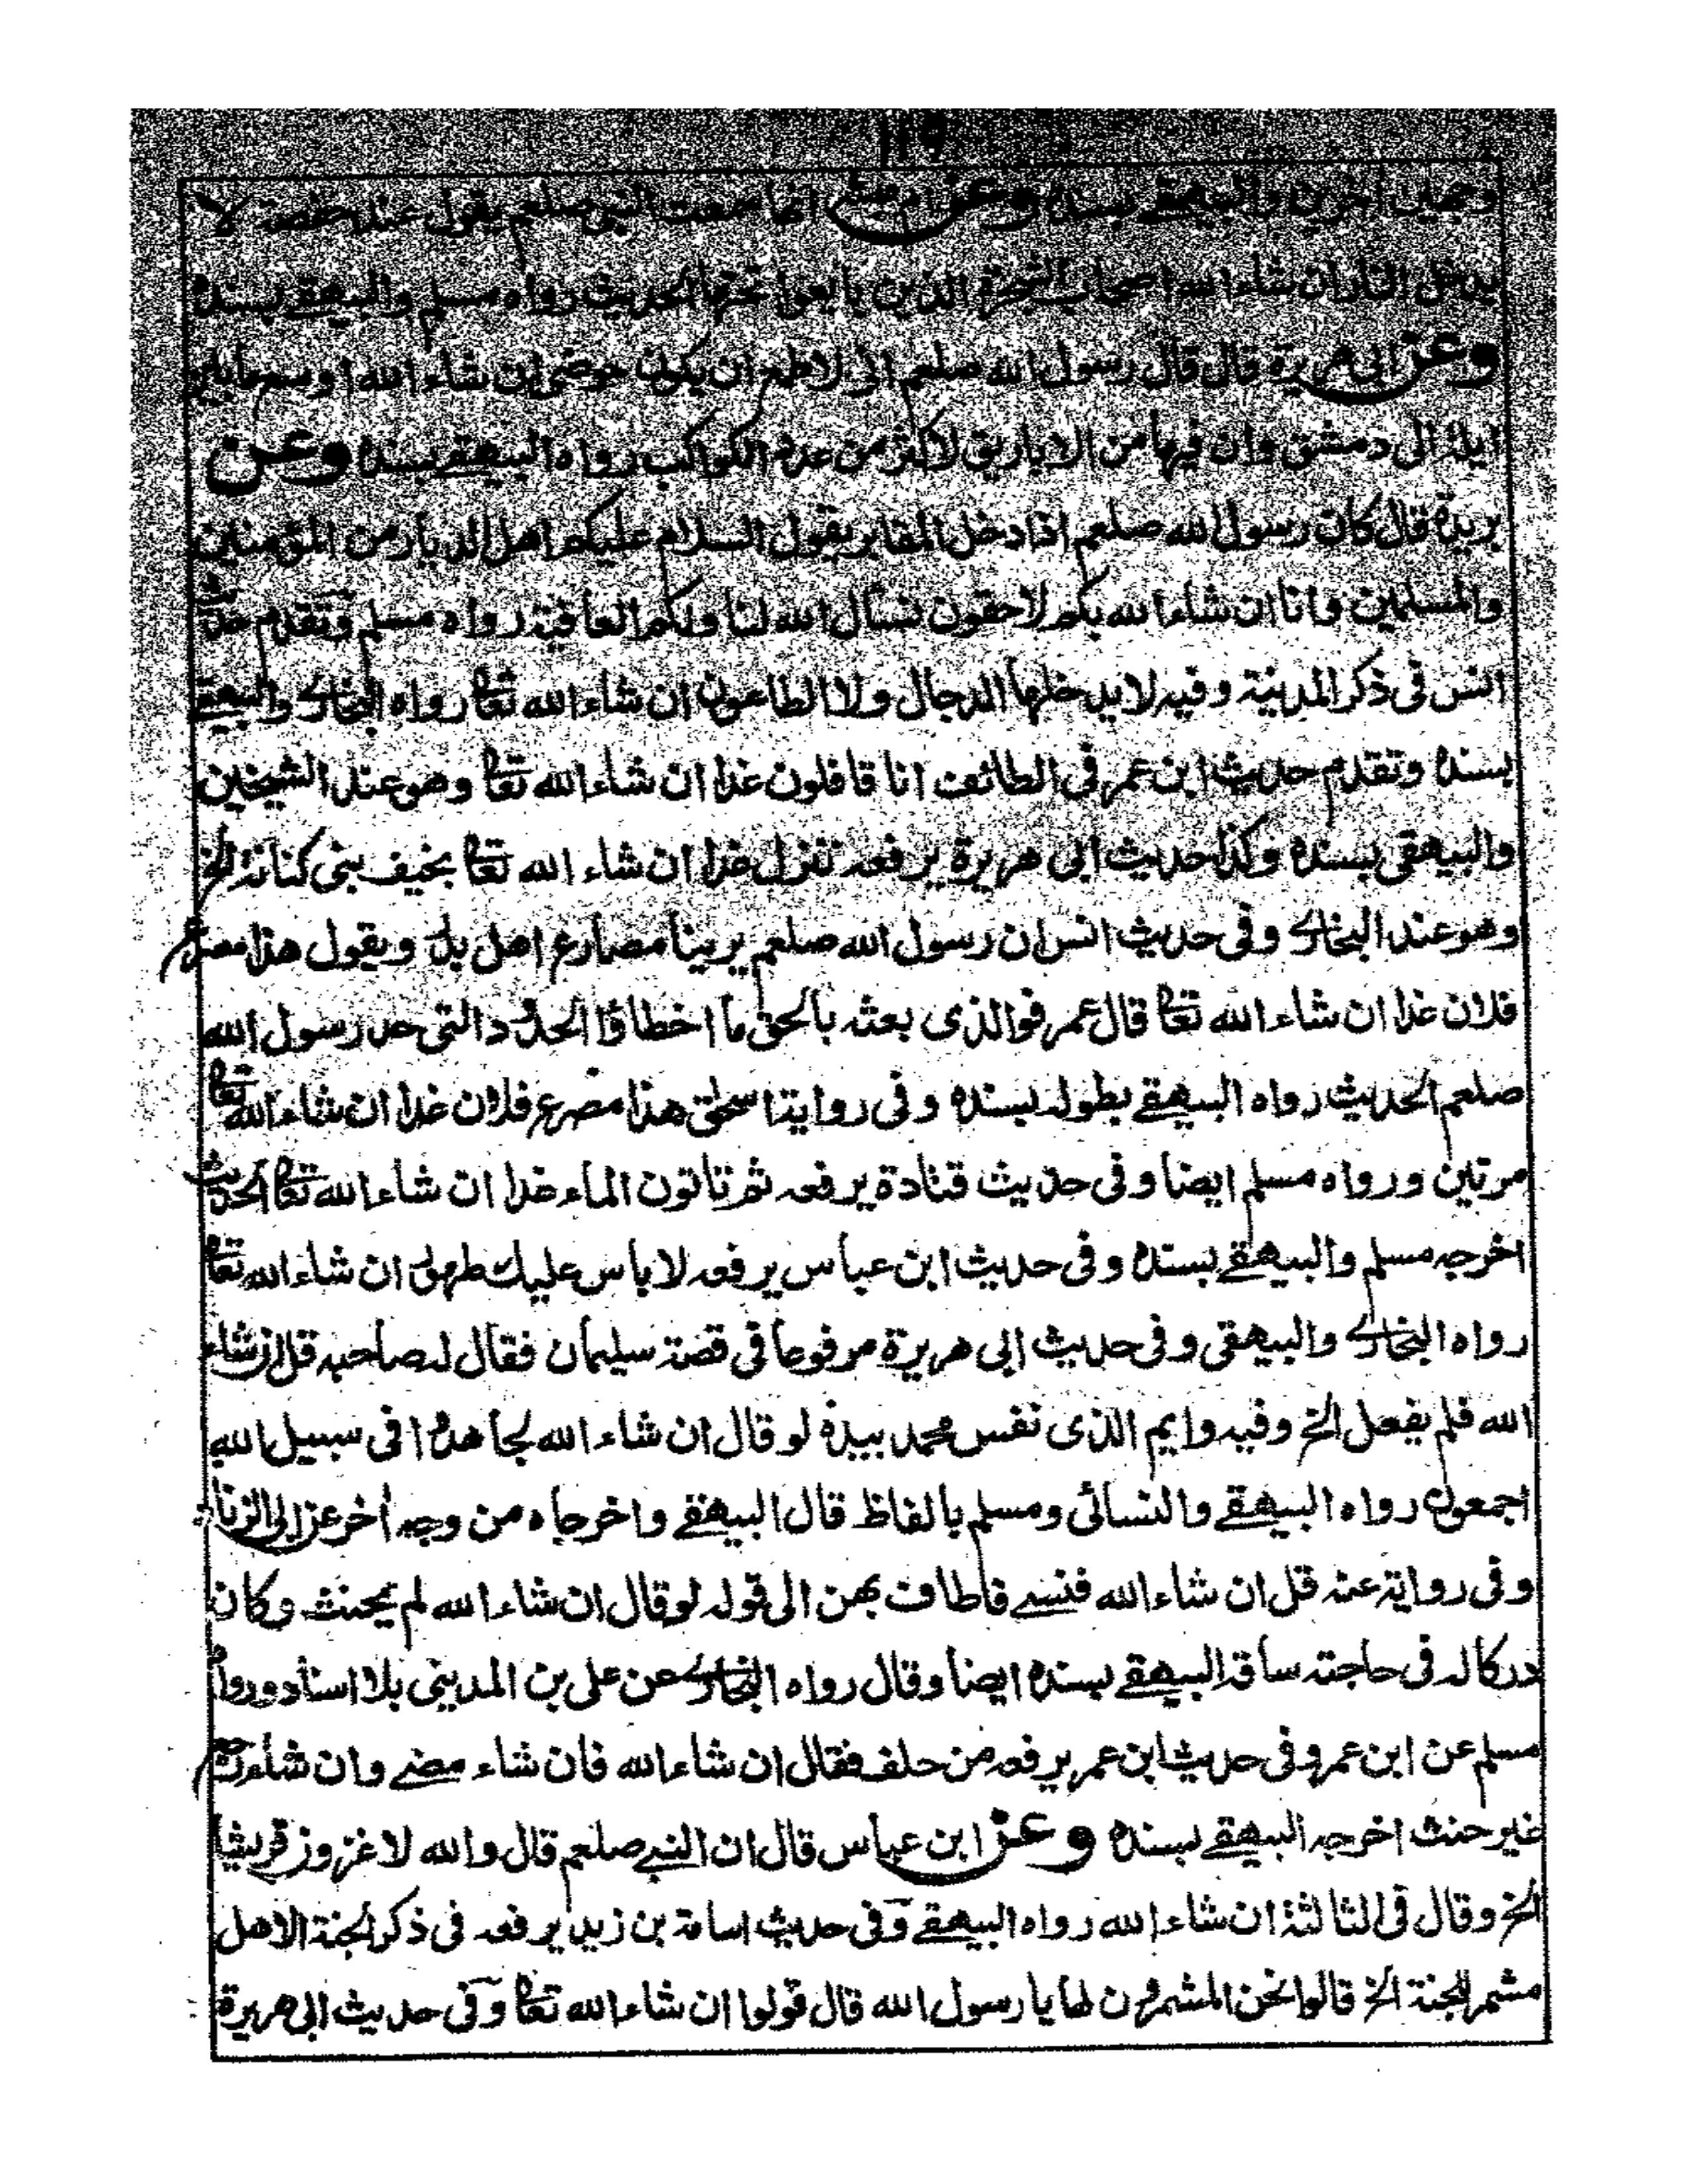 ١١٩
وجهين اخرين والبيهقے بسنده وعن ام مبشر انها سمعت النبي صلعم يقول عند حفصة لا
يدخل النار ان شاء الله اصحاب الشجرة الذين بايعوا تحتها الحديث رواه مسلم والبيهقے بسنده
وعن ابى هريرة قال قال رسول الله صلعم انى لاطمع ان يكون حوضى ان شاء الله اوسع مابين
ايلة الى دمشق وان فيها من الاباريق لاكثر من عدد الكواكب رواه البيهقے بسنده وعن
بريدة قال كان رسول الله صلعم اذا دخل المقابر يقول السلام عليكم اهل الديار من المؤمنين
والمسلمين وانا ان شاء الله بكم لاحقون نسأل الله لنا ولكم العافية رواه مسلم وتقدم حديث
انس فى ذكر المدينة وفيه لا يدخلها الدجال ولا الطاعون ان شاء الله تعالى رواه البخارى والبيهقے
بسنده وتقدم حديث ابن عمر فى الطائف انا قافلون غدا ان شاء الله تعالى وهو عند الشيخين
والبيهقى بسنده وكذا حديث ابى هريرة يرفعه ننزل غدا ان شاء الله تعالى بخيف بنى كنانة الخ
وهو عند البخارى وفى حديث انس ان رسول الله صلعم يرينا مصارع اهل بدر ويقول هذا مصرع
فلان غدا ان شاء الله تعالى قال عمر فوالذى بعثه بالحق ما اخطاؤا الحدود التى حد رسول الله
صلعم الحديث رواه البيهقے بطوله بسنده وفى رواية اسحق هذا مصرع فلان غدا ان شاء الله تعالى
مرتين ورواه مسلم ايضا وفى حديث قتادة يرفعه ثم تاتون الماء غدا ان شاء الله تعالى الحديث
اخرجه مسلم والبيهقے بسنده وفى حديث ابن عباس يرفعه لا باس عليك طهور ان شاء الله تعالى
رواه البخارى والبيهقى وفى حديث ابى هريرة مرفوعا فى قصة سليمان فقال له صاحبه قل ان شاء
الله فلم يفعل الخ وفيه وايم الذى نفس محمد بيده لو قال ان شاء الله لجاهدوا فى سبيل الله
اجمعون رواه البيهقے والنسائى ومسلم بالفاظ قال البيهقے واخرجاه من وجه أخر عن ابى الزناد
وفى رواية عنه قل ان شاء الله فنسے فاطاف بهن الى قوله لو قال ان شاء الله لم يحنث وكان
دركا له فى حاجته ساقه البيهقے بسنده ايضا وقال رواه البخارى عن على بن المدينى بلا اسناد ورواه
مسلم عن ابن عمر وفى حديث ابن عمر يرفعه من حلف فقال ان شاء الله فان شاء مضے وان شاء رجع
غير حنث اخرجه البيهقے بسنده وعن ابن عباس قال ان النبے صلعم قال والله لاغزون قريشا
الخ وقال فى الثالثة ان شاء الله رواه البيهقے وفى حديث اسامة بن زيد يرفعه فى ذكر الجنة الاهل
مشمر للجنة الخ قالوا نحن المشمرون لها يا رسول الله قال قولوا ان شاء الله تعالى وفى حديث ابى هريرة